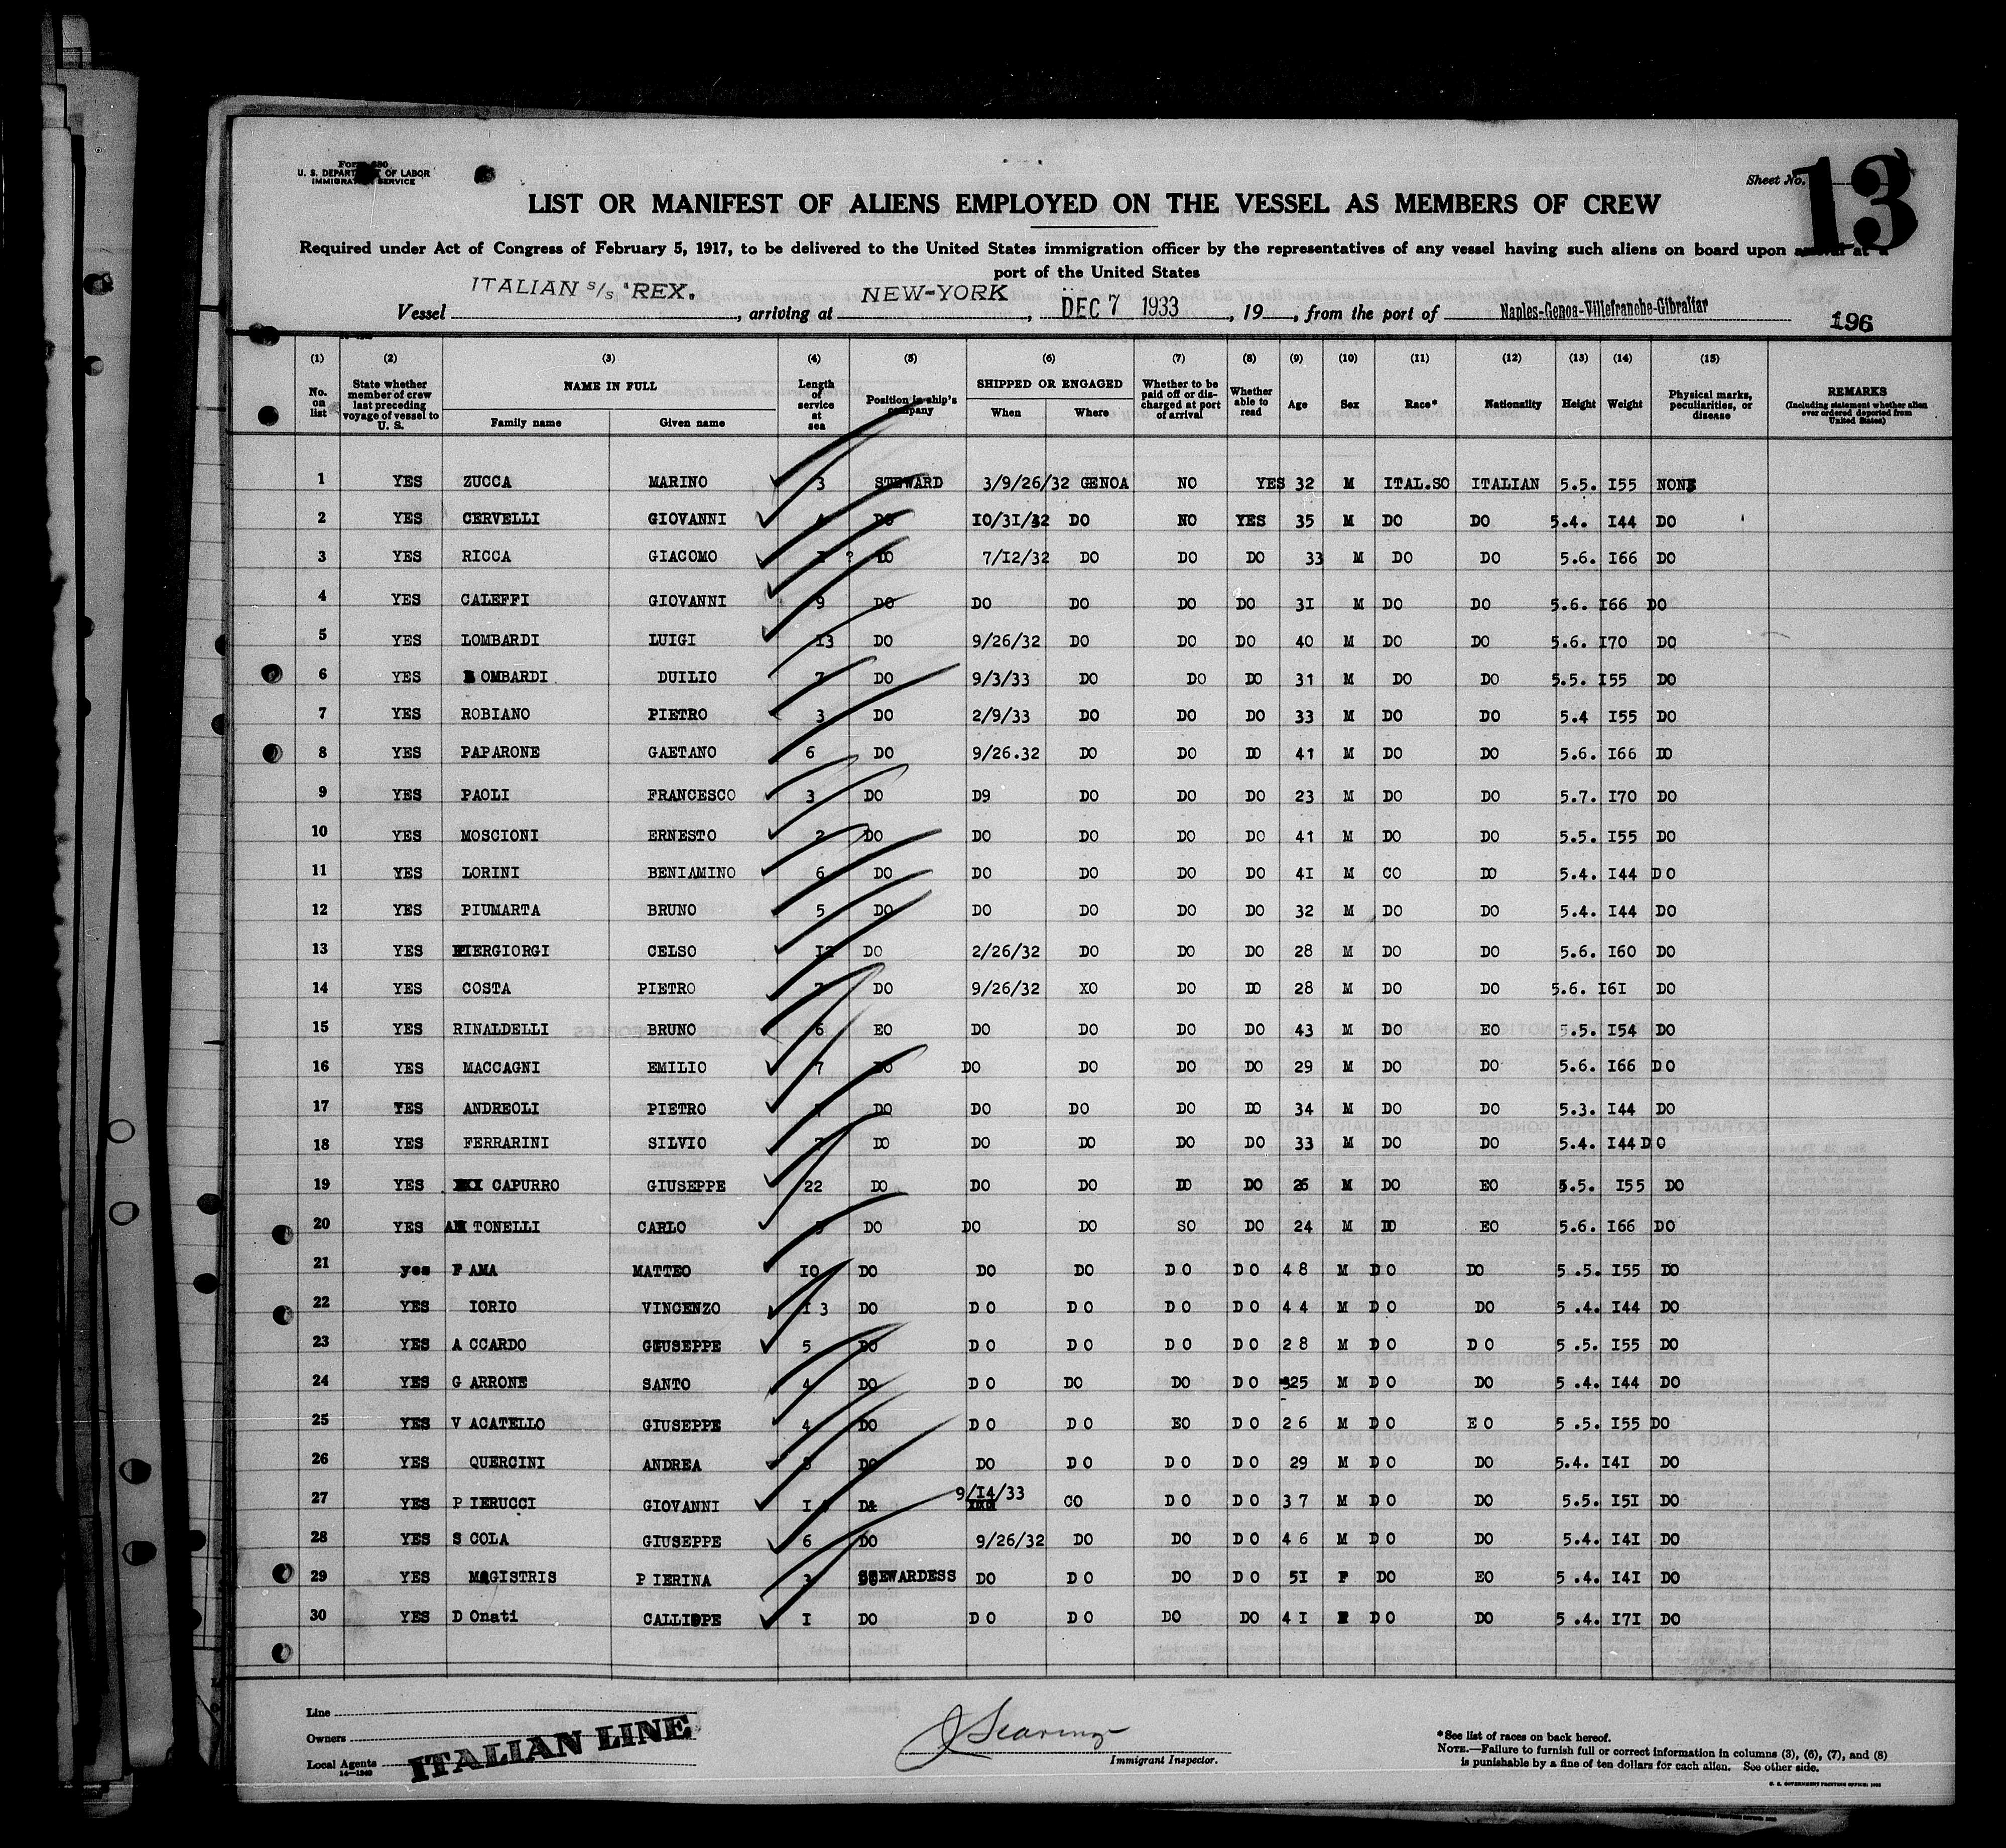 Form 680
U. S. DEPARTMENT OF LABOR
IMMIGRATION SERVICE
Sheet No. 13
LIST OR MANIFEST OF ALIENS EMPLOYED ON THE VESSEL AS MEMBERS OF CREW
Required under Act of Congress of February 5, 1917, to be delivered to the United States immigration officer by the representatives of any vessel having such aliens on board upon arrival at a
port of the United States
Vessel ITALIAN S/S "REX, arriving at NEW-YORK, DEC 7 1933, 19 , from the port of Naples-Genoa-Villefranche-Gibraltar
196
(1) (2) (3) (4) (5) (6) (7) (8) (9) (10) (11) (12) (13) (14) (15)
No. on list State whether member of crew last preceding voyage of vessel to U. S. NAME IN FULL Family name Given name Length of service at sea Position in ship's company SHIPPED OR ENGAGED When Where Whether to be paid off or discharged at port of arrival Whether able to read Age Sex Race* Nationality Height Weight Physical marks, peculiarities, or disease REMARKS (Including statement whether alien ever ordered deported from United States)
1 YES ZUCCA MARINO 3 STEWARD 3/9/26/32 GENOA NO YES 32 M ITAL.SO ITALIAN 5.5. I55 NONE
2 YES CERVELLI GIOVANNI DO IO/31/32 DO NO YES 35 M DO DO 5.4. I44 DO
3 YES RICCA GIACOMO ? DO 7/I2/32 DO DO DO 33 M DO DO 5.6. I66 DO
4 YES CALEFFI GIOVANNI 9 DO DO DO DO DO 3I M DO DO 5.6. I66 DO
5 YES LOMBARDI LUIGI I3 DO 9/26/32 DO DO DO 40 M DO DO 5.6. I70 DO
6 YES OMBARDI DUILIO 7 DO 9/3/33 DO DO DO 31 M DO DO 5.5. I55 DO
7 YES ROBIANO PIETRO 3 DO 2/9/33 DO DO DO 33 M DO DO 5.4 I55 DO
8 YES PAPARONE GAETANO 6 DO 9/26.32 DO DO DO 41 M DO DO 5.6. I66 DO
9 YES PAOLI FRANCESCO 3 DO D9 DO DO DO 23 M DO DO 5.7. I70 DO
10 YES MOSCIONI ERNESTO 2 DO DO DO DO DO 41 M DO DO 5.5. I55 DO
11 YES LORINI BENIAMINO 6 DO DO DO DO DO 4I M CO DO 5.4. I44 DO
12 YES PIUMARTA BRUNO 5 DO DO DO DO DO 32 M DO DO 5.4. I44 DO
13 YES PIERGIORGI CELSO I2 DO 2/26/32 DO DO DO 28 M DO DO 5.6. I60 DO
14 YES COSTA PIETRO 7 DO 9/26/32 XO DO DO 28 M DO DO 5.6. I6I DO
15 YES RINALDELLI BRUNO 6 EO DO DO DO DO 43 M DO EO 5.5. I54 DO
16 YES MACCAGNI EMILIO 7 DO DO DO DO DO 29 M DO DO 5.6. I66 DO
17 YES ANDREOLI PIETRO DO DO DO DO DO 34 M DO DO 5.3. I44 DO
18 YES FERRARINI SILVIO 7 DO DO DO DO DO 33 M DO DO 5.4. I44 DO
19 YES CAPURRO GIUSEPPE 22 DO DO DO DO DO 26 M DO EO 5.5. I55 DO
20 YES ANTONELLI CARLO DO DO DO SO DO 24 M DO EO 5.6. I66 DO
21 yes FAMA MATTEO IO DO DO DO DO DO 48 M DO DO 5.5. I55 DO
22 YES IORIO VINCENZO I3 DO DO DO DO DO 44 M DO DO 5.4. I44 DO
23 YES ACCARDO GIUSEPPE 5 DO DO DO DO DO 28 M DO DO 5.5. I55 DO
24 YES GARRONE SANTO 4 DO DO DO DO DO 25 M DO DO 5.4. I44 DO
25 YES VACATELLO GIUSEPPE 4 DO DO DO EO DO 26 M DO EO 5.5. I55 DO
26 YES QUERCINI ANDREA DO DO DO DO DO 29 M DO DO 5.4. I4I DO
27 YES PIERUCCI GIOVANNI D& 9/I4/33 CO DO DO 37 M DO DO 5.5. I5I DO
28 YES SCOLA GIUSEPPE 6 DO 9/26/32 DO DO DO 46 M DO DO 5.4. I4I DO
29 YES MAGISTRIS PIERINA 3 STEWARDESS DO DO DO DO 5I F DO EO 5.4. I4I DO
30 YES DOnati CALLIOPE I DO DO DO DO DO 4I F DO DO 5.4. I7I DO
Line
Owners
Local Agents ITALIAN LINE
14—1240
Immigrant Inspector.
*See list of races on back hereof.
NOTE.—Failure to furnish full or correct information in columns (3), (6), (7), and (8)
is punishable by a fine of ten dollars for each alien. See other side.